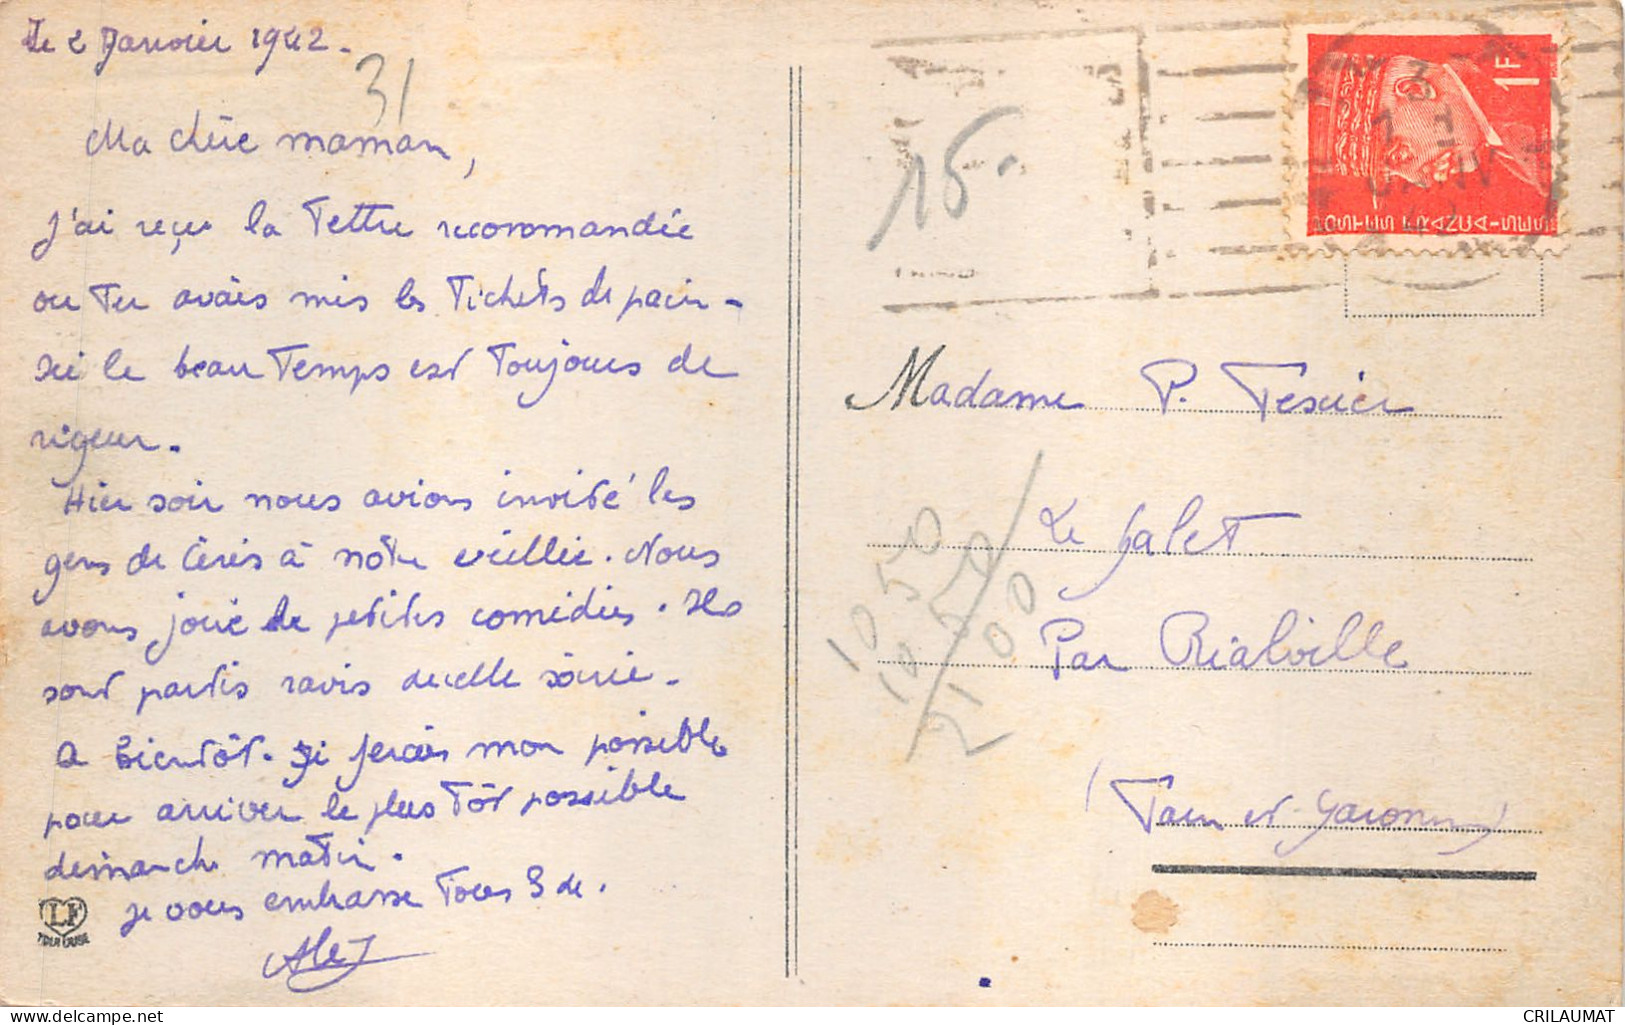 Le 2 Janvier 1942.
31
Ma chère maman,
J'ai reçu la lettre recommandée
ou tu avais mis les tickets de pain -
ici le beau temps est toujours de
rigeur.
Hier soir nous avions invité les
gens de Cérès à nôtre veillée. Nous
avons joué de petites comédies. Ils
sont partis ravis de celle soirée.
A bientôt. Je ferais mon possible
pour arriver le plus tôt possible
dimanche matin.
je vous embrasse tous 3 de.
Alex
LF
TOULOUSE
15.
1F
POSTES FRANÇAISES
JANV
Madame P. Texier
Le falet
Par Réalville
(Tarn et Garonne)
10 50
10 50
21 00
CRILAUMAT